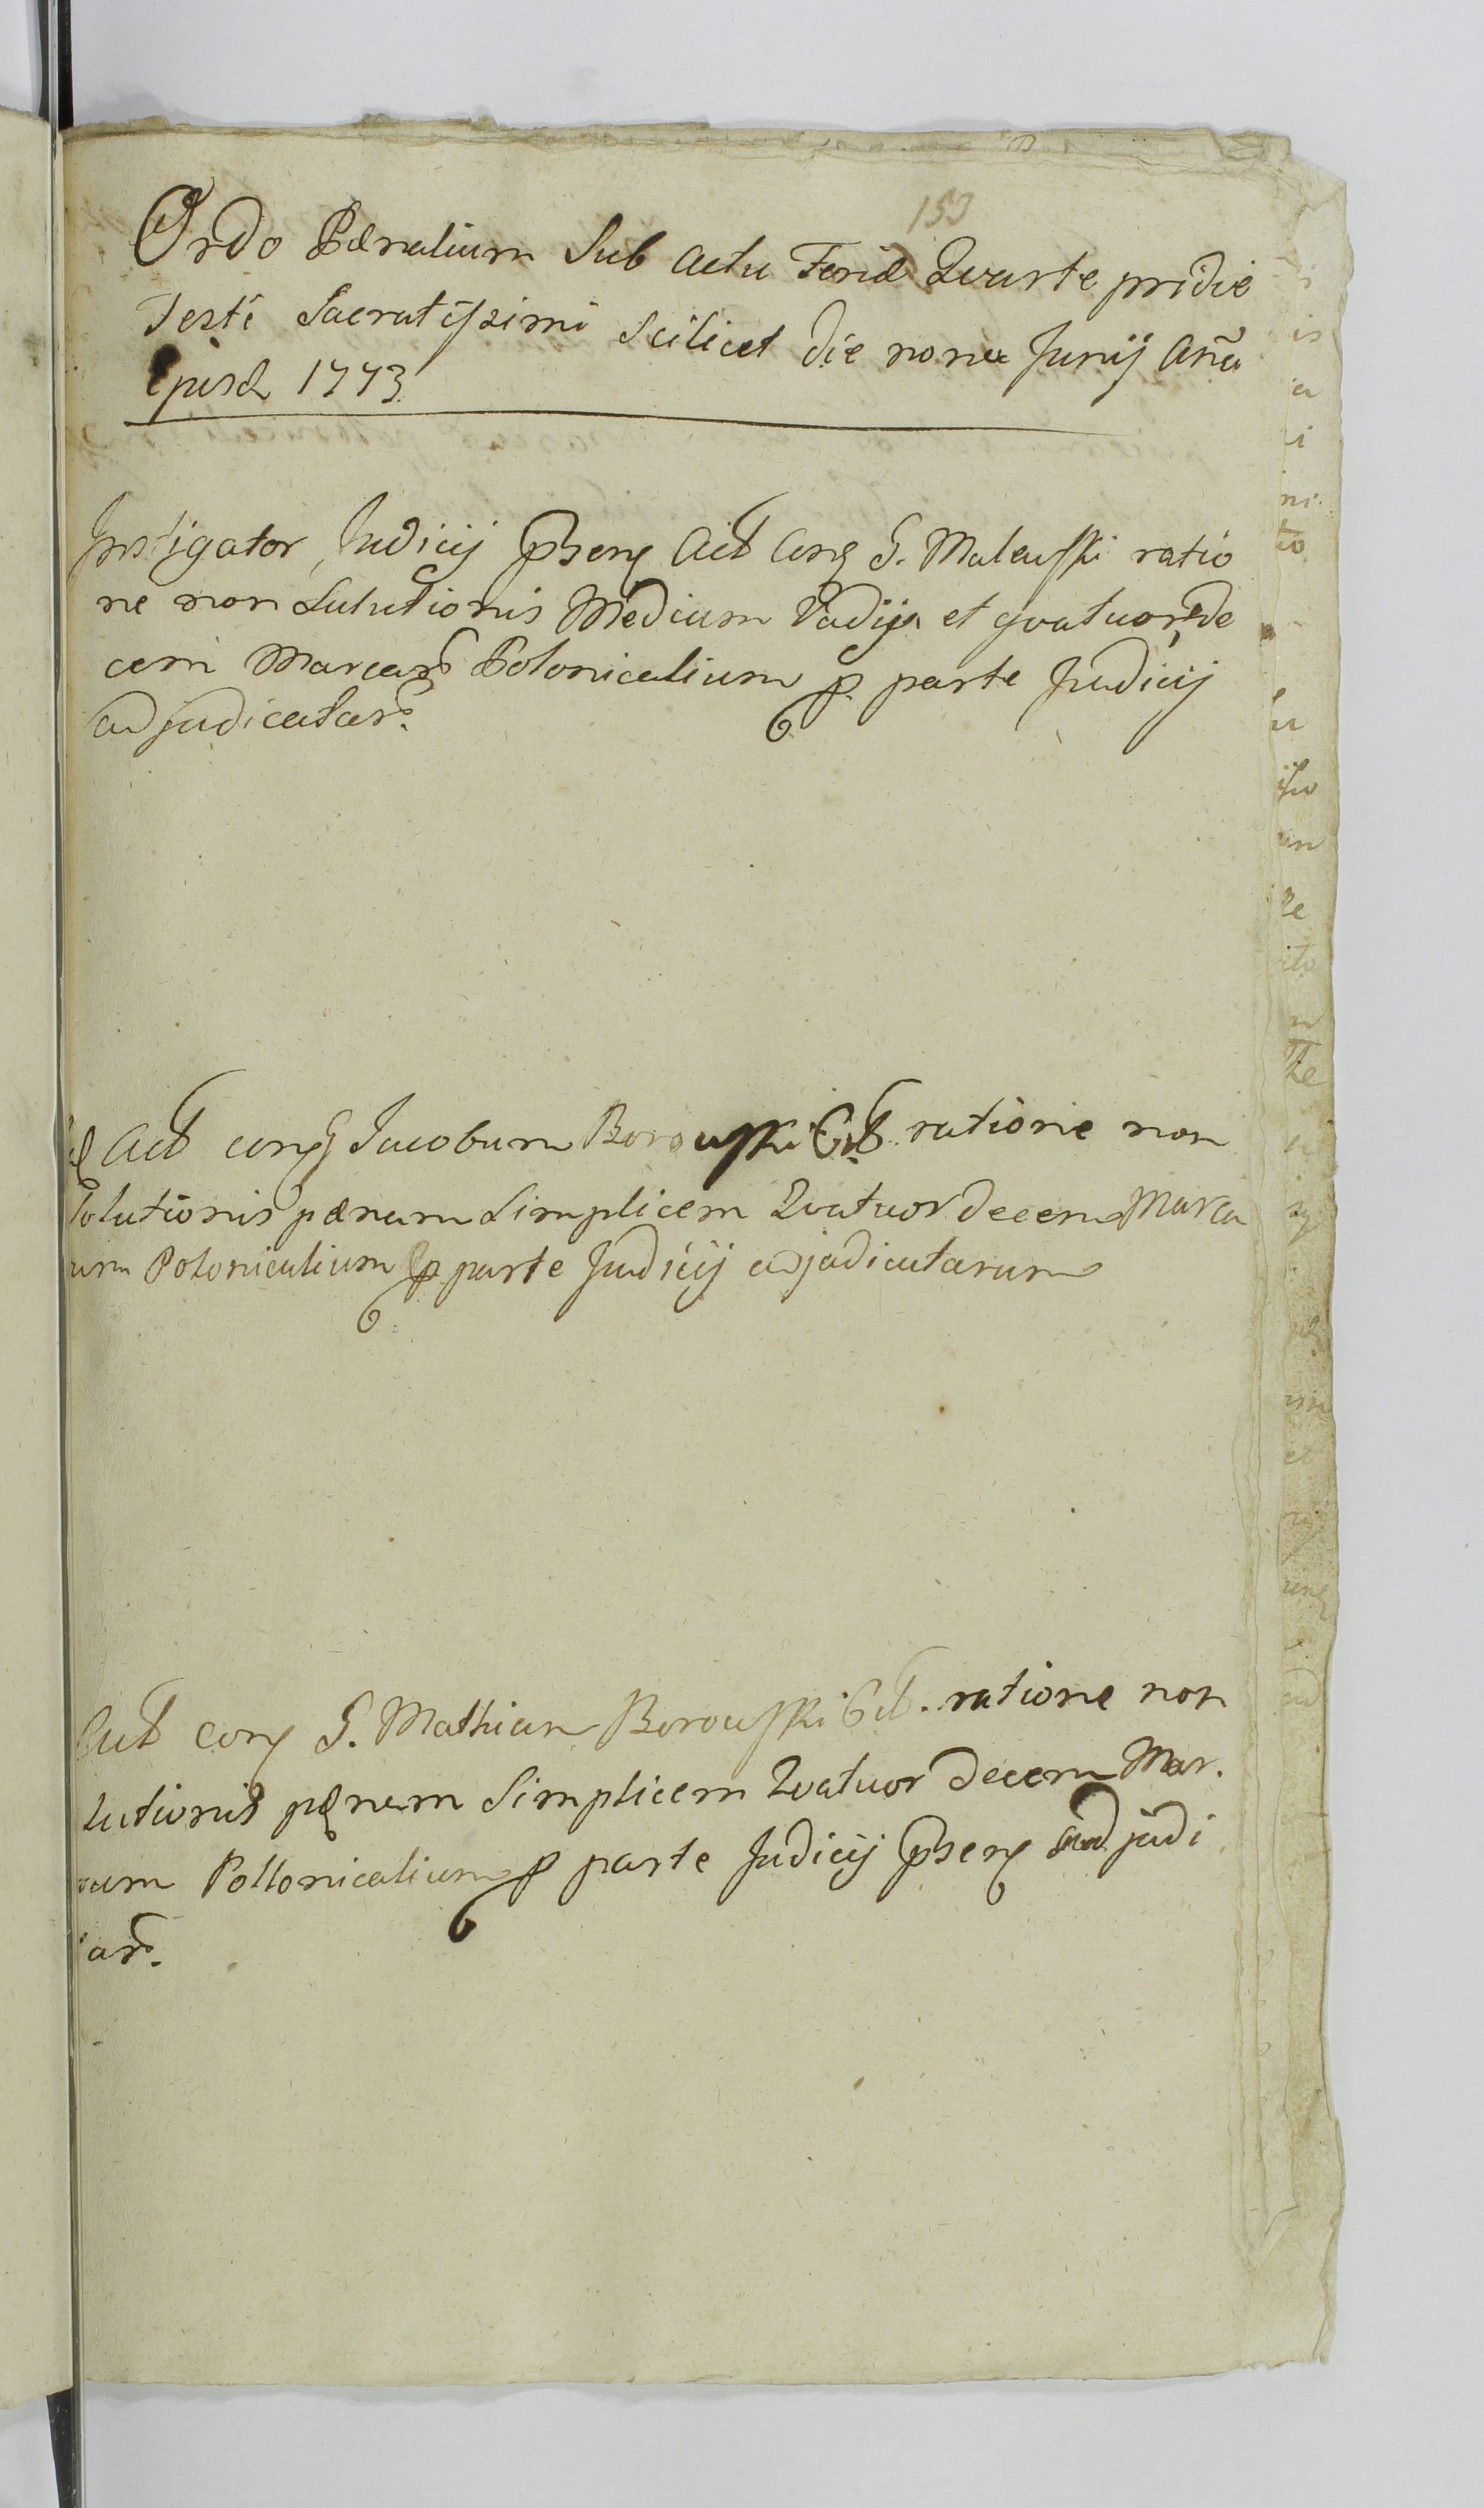 153
Ordo Pœnalium Sub Actu Feriæ Quarte pridie
Festi Sacratissimi Scilicet die nona Junij Año
Ejusd 1773
Instigator Judicij Pßens Act Con G. Malewski ratio
ne non Solutionis Medium Vadij et quatuor de
cem Marcar Polonicalium p parte Judicij
adjudicatar.
Act con Jacobum Borowski Git ratione non
Solutionis pænam Simplicem Quatuor decem Marca
um Polonicalium p parte Judicij adjudicatarum
Act con G. Mathian Borowski Git. ratione non
lutionis pænam Simplicem Quatuor decem Mar.
rum Pollonicalium p parte Judicij Pßens adjudi
ar.